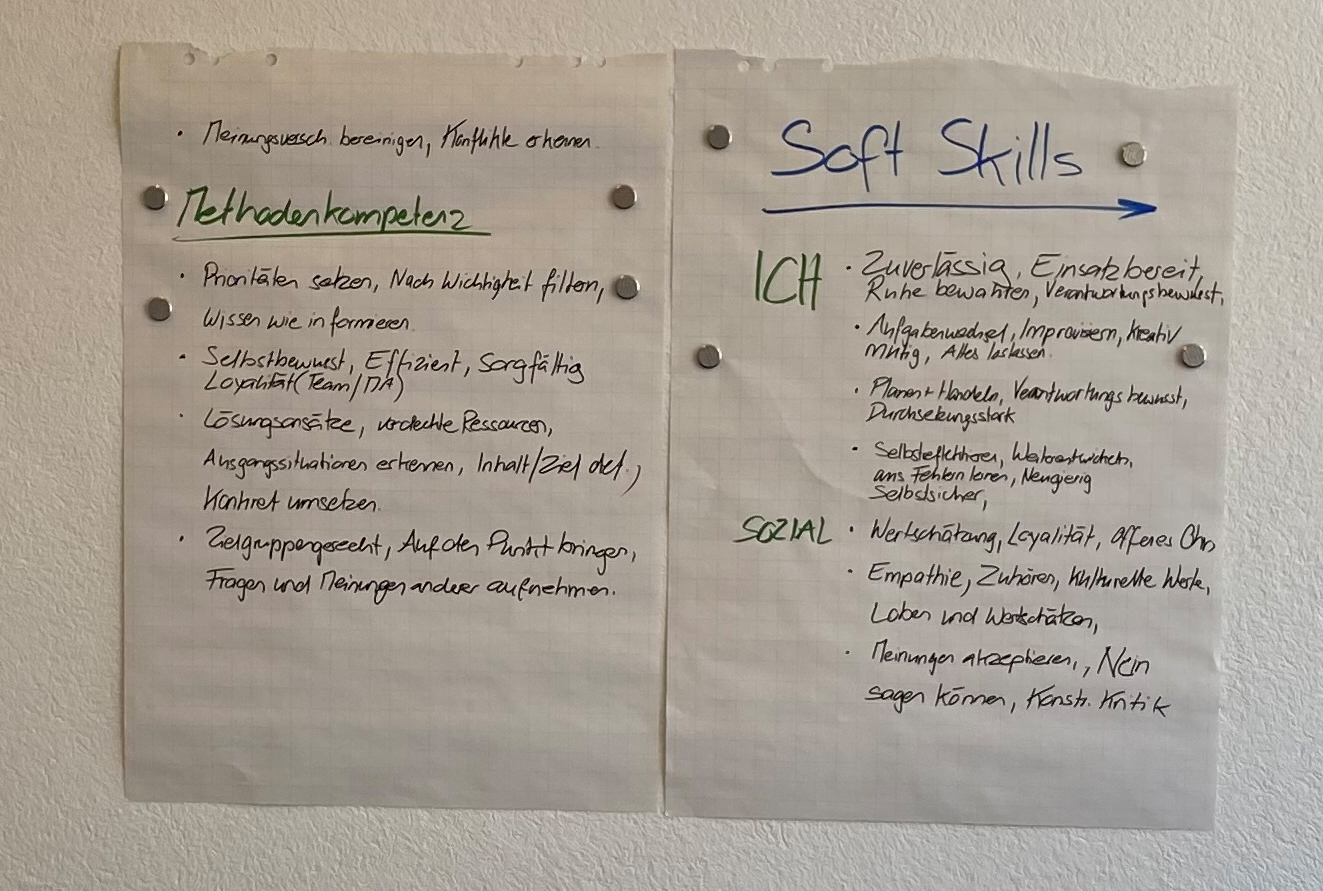 • Meinungsversch. bereinigen, Konflikte erkennen.
Methodenkompetenz
• Prioritäten setzen, Nach Wichtigkeit filtern,
Wissen wie informieren.
• Selbstbewusst, Effizient, Sorgfältig
Loyalität (Team/MA)
• Lösungsansätze, verdeckte Ressourcen,
Ausgangssituationen erkennen, Inhalt/Ziel def.,
Konkret umsetzen.
• Zielgruppengerecht, Auf den Punkt bringen,
Fragen und Meinungen anderer aufnehmen.
Soft Skills
ICH • Zuverlässig, Einsatzbereit,
Ruhe bewahren, Verantwortungsbewusst,
• Aufgabenwechsel, Improvisieren, Kreativ
Mutig, Altes loslassen.
• Planen + Handeln, Verantwortungsbewusst,
Durchsetzungsstark
• Selbstreflektieren, Weiterentwickeln,
aus Fehlern lernen, Neugierig
Selbstsicher,
SOZIAL • Wertschätzung, Loyalität, offenes Ohr
• Empathie, Zuhören, Kulturelle Werte,
Loben und Wertschätzen,
• Meinungen akzeptieren,, Nein
sagen können, Konstr. Kritik